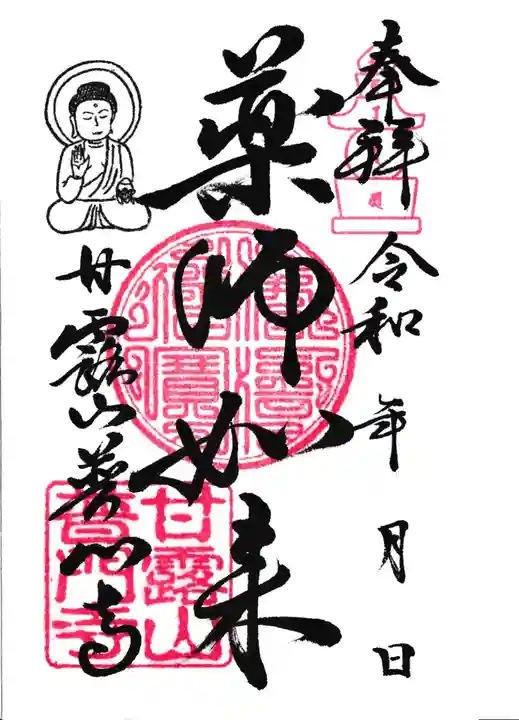 奉拝
令和 年 月 日
薬師如来
甘露山普門寺
甘露山
普門寺